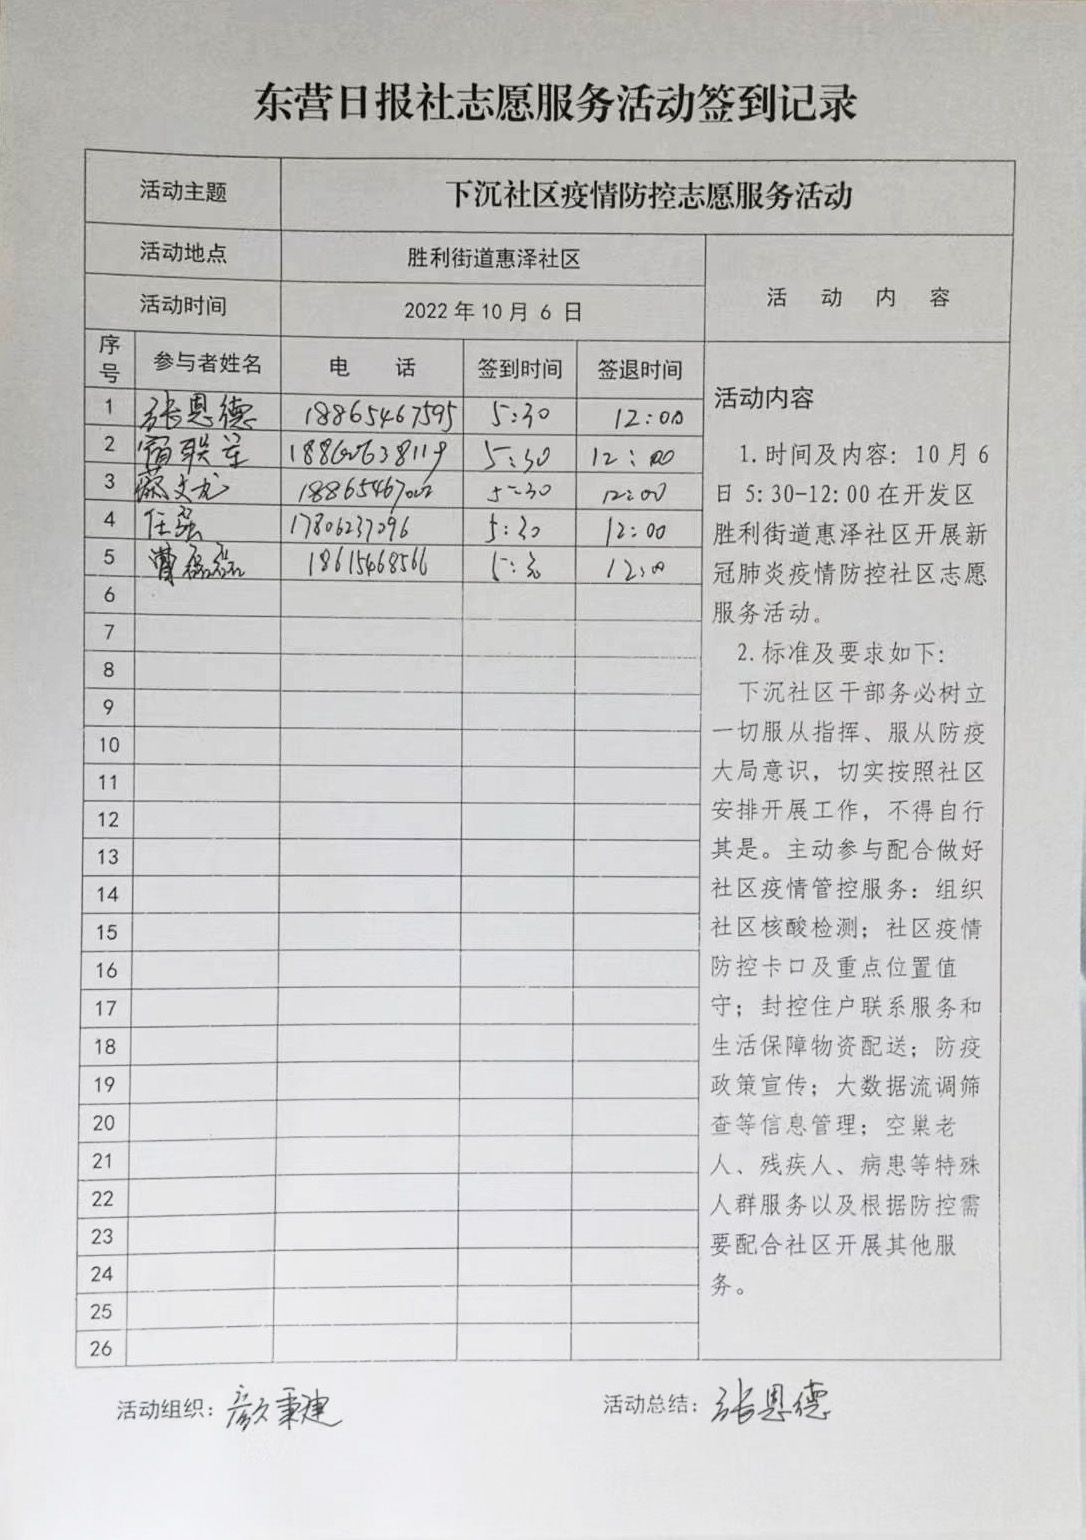 东营日报社志愿服务活动签到记录
活动主题 下沉社区疫情防控志愿服务活动
活动地点 胜利街道惠泽社区
活动时间 2022年10月6日
活动内容
序号 参与者姓名 电话 签到时间 签退时间
1 张恩德 18865467595 5:30 12:00
2 宿联军 5:30 12:00
3 5:30 12:00
4 任磊 17806237096 5:30 12:00
5 曹磊磊 18615468566 5:30 12:00
6
7
8
9
10
11
12
13
14
15
16
17
18
19
20
21
22
23
24
25
26
活动内容
1.时间及内容: 10月6
日5:30-12:00在开发区
胜利街道惠泽社区开展新
冠肺炎疫情防控社区志愿
服务活动。
2.标准及要求如下:
下沉社区干部务必树立
一切服从指挥、服从防疫
大局意识，切实按照社区
安排开展工作，不得自行
其是。主动参与配合做好
社区疫情管控服务: 组织
社区核酸检测；社区疫情
防控卡口及重点位置值
守；封控住户联系服务和
生活保障物资配送；防疫
政策宣传；大数据流调筛
查等信息管理；空巢老
人、残疾人、病患等特殊
人群服务以及根据防控需
要配合社区开展其他服
务。
活动组织: 颜秉建
活动总结: 张恩德